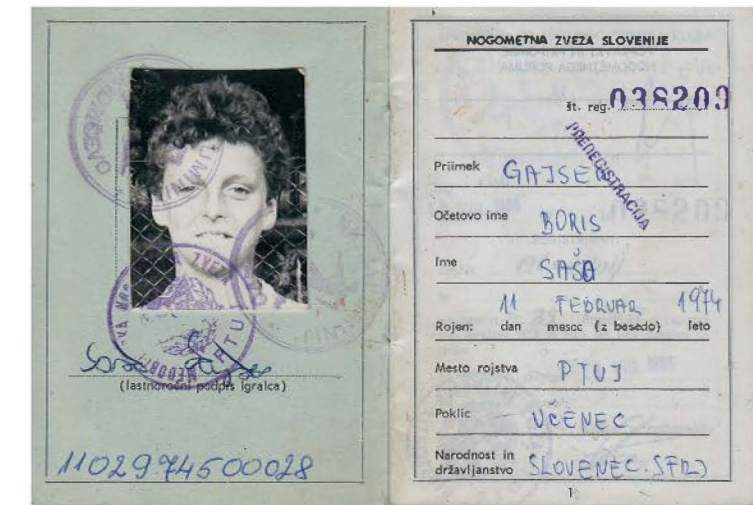 (lastnoročni podpis igralca)
1102974500028
NOGOMETNA ZVEZA SLOVENIJE
št. reg. 038209
PREREGISTRACIJA
Priimek GAJSER
Očetovo ime BORIS
Ime SAŠA
11 FEBRUAR 1974
Rojen: dan mesec (z besedo) leto
Mesto rojstva PTUJ
Poklic UČENEC
Narodnost in
državljanstvo SLOVENEC. SFRJ
1